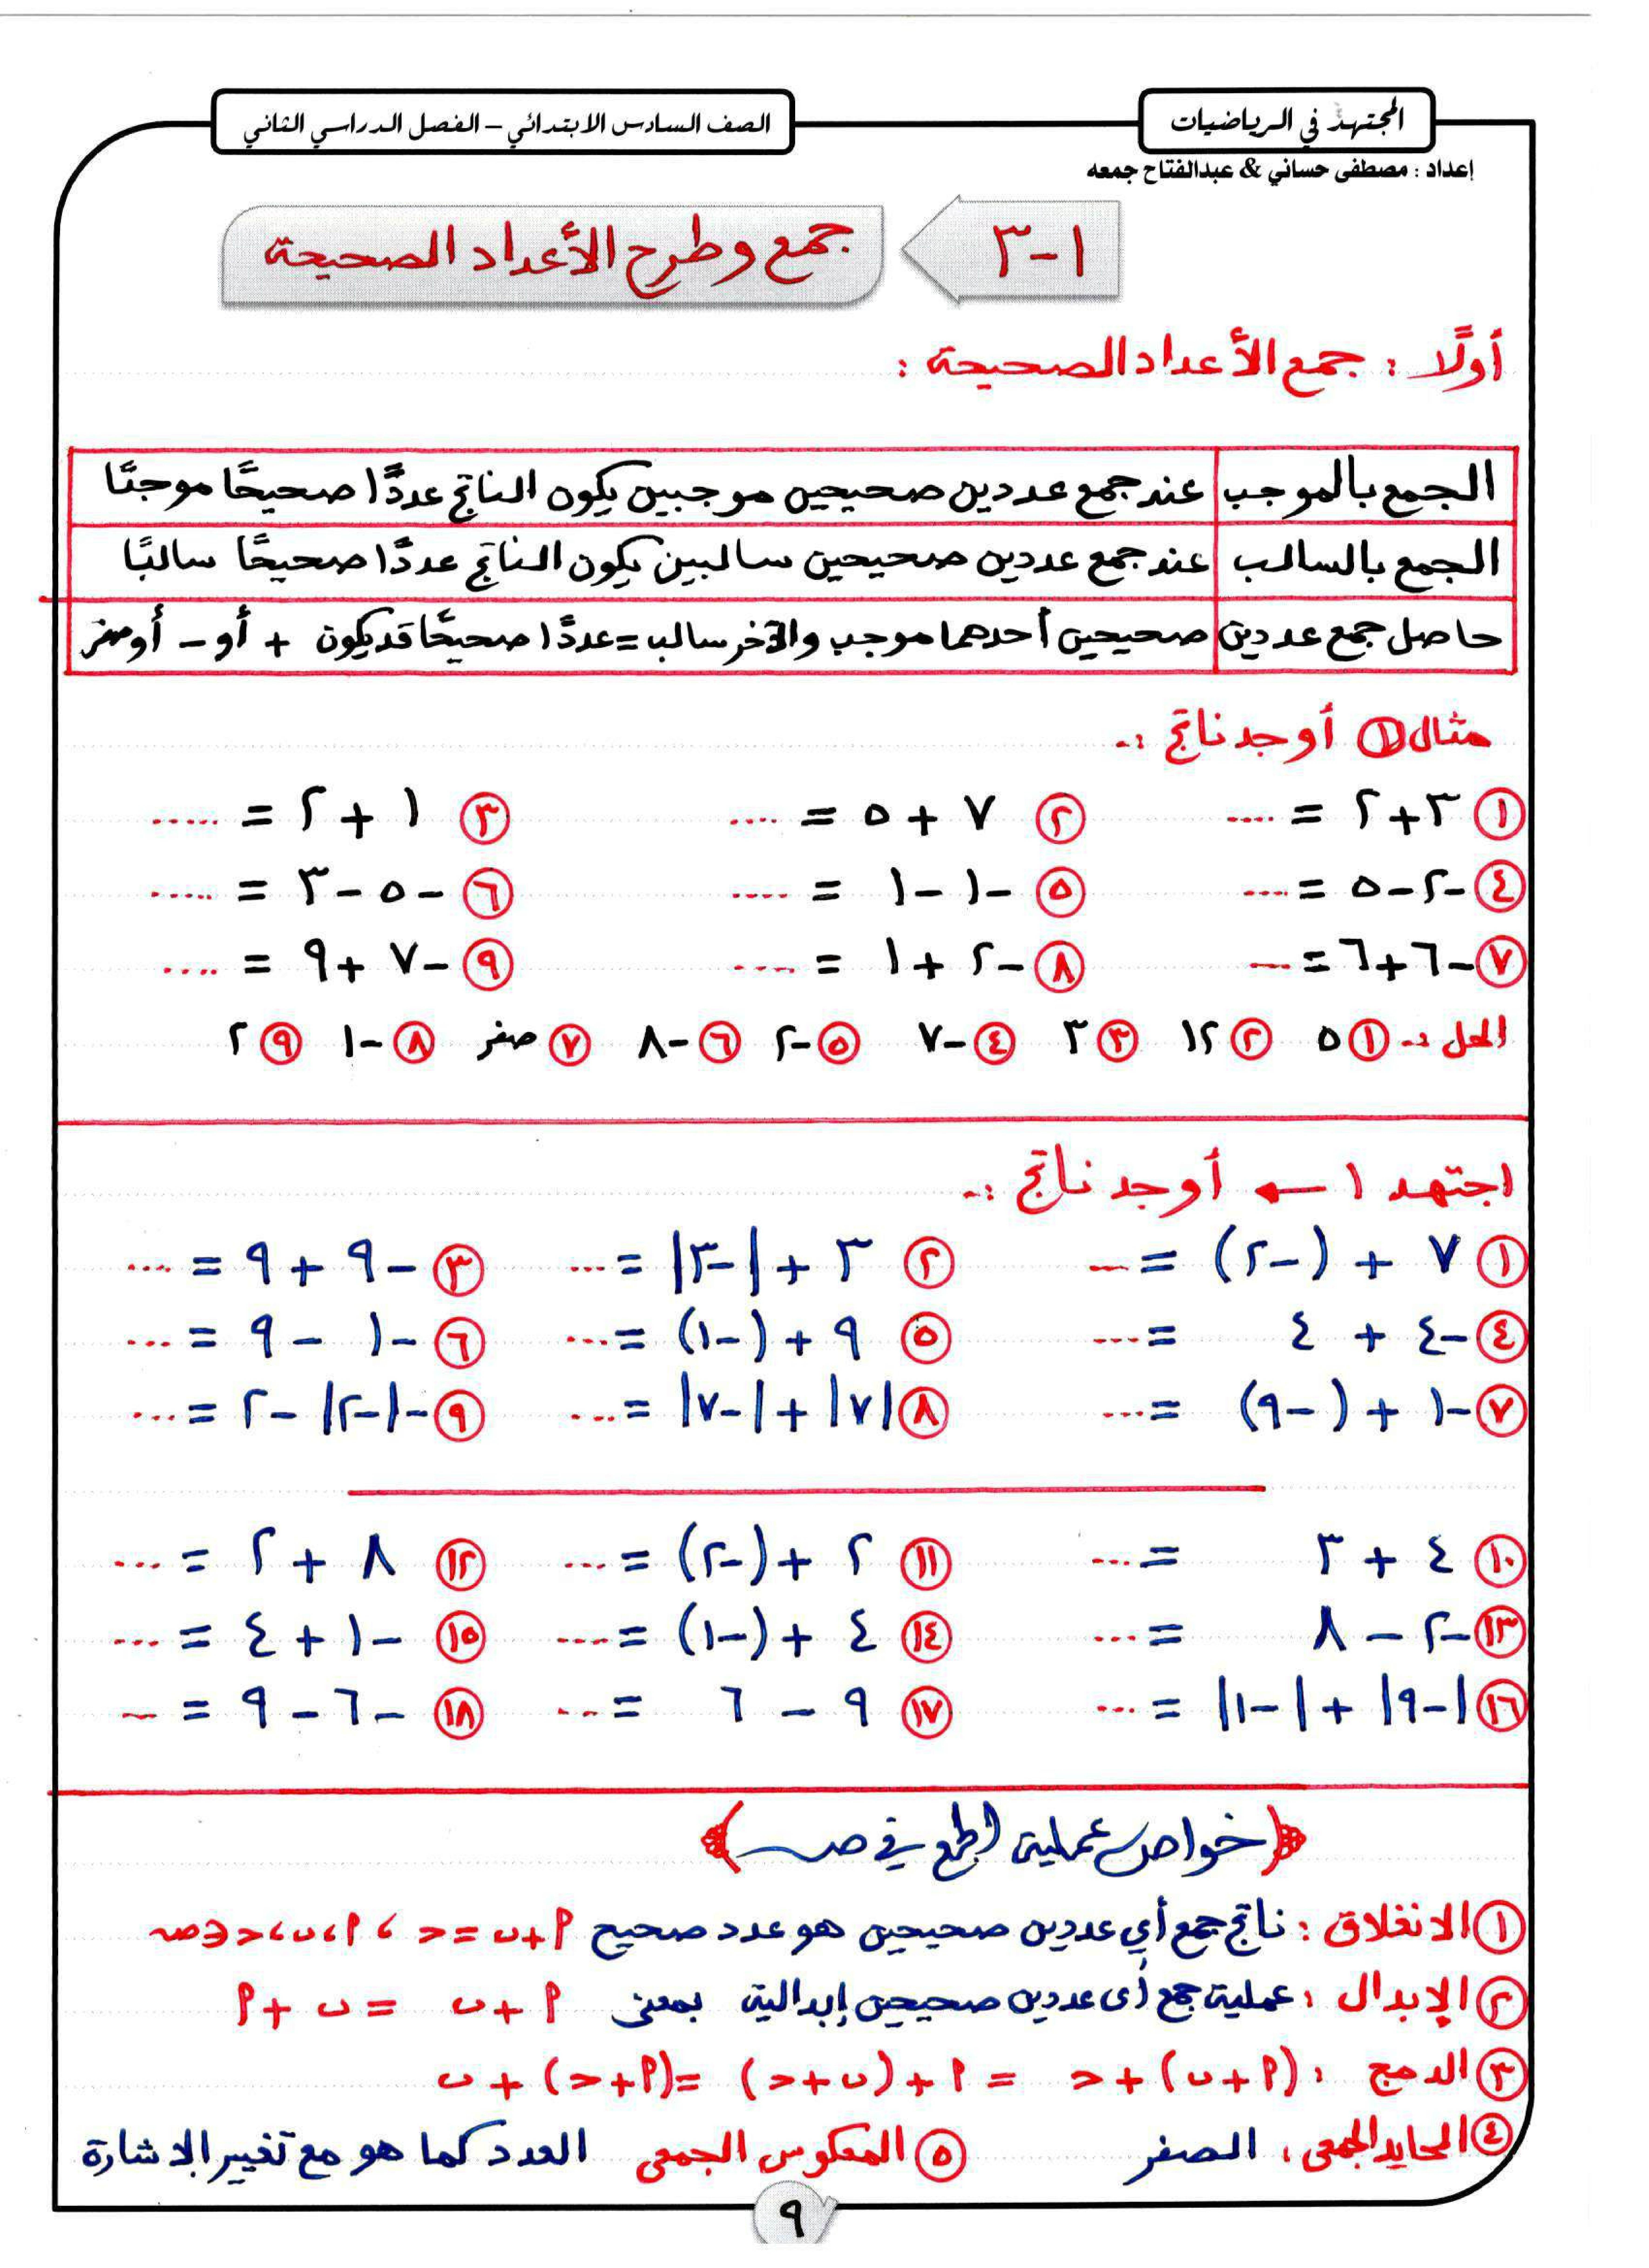 المجتهد في الرياضيات
الصف السادس الابتدائي – الفصل الدراسي الثاني
إعداد : مصطفى حساني & عبدالفتاح جمعه
١-٣ جمع وطرح الأعداد الصحيحة
أولًا : جمع الأعداد الصحيحة :
الجمع بالموجب عند جمع عددين صحيحين موجبين يكون الناتج عددًا صحيحًا موجبًا
الجمع بالسالب عند جمع عددين صحيحين سالبين يكون الناتج عددًا صحيحًا سالبًا
حاصل جمع عددين صحيحين أحدهما موجب والآخر سالب = عددًا صحيحًا قد يكون + أو - أو صفر
مثال ① أوجد ناتج :-
① ٣+٢ = .... ② ٧ + ٥ = .... ③ ١ + ٢ = .....
④ -٢-٥ = .... ⑤ -١ -١ = .... ⑥ -٥ -٣ = .....
⑦ -٦+٦ = .... ⑧ -٢ +١ = .... ⑨ -٧ +٩ = ....
الحل :- ① ٥ ② ١٢ ③ ٣ ④ -٧ ⑤ -٢ ⑥ -٨ ⑦ صفر ⑧ -١ ⑨ ٢
اجتهد ١ ← أوجد ناتج :-
① ٧ + (-٢) = ... ② ٣ + |-٣| = ... ③ -٩ + ٩ = ...
④ -٤ + ٤ = ... ⑤ ٩ + (-١) = ... ⑥ -١ - ٩ = ...
⑦ -١ + (-٩) = ... ⑧ |٧| + |-٧| = ... ⑨ -|-٢| -٢ = ...
⑩ ٤ + ٣ = ... ⑪ ٢ + (-٢) = ... ⑫ ٨ + ٢ = ...
⑬ -٢ - ٨ = ... ⑭ ٤ + (-١) = .... ⑮ -١ + ٤ = ...
⑯ |-٩| + |-١| = ... ⑰ ٩ - ٦ = ... ⑱ -٦ - ٩ = ...
خواص عملية الجمع في صـ
① الانغلاق : ناتج جمع أي عددين صحيحين هو عدد صحيح أ+ب = حـ ، أ، ب، حـ ∈ صـ
② الإبدال : عملية جمع أي عددين صحيحين إبدالية بمعنى أ + ب = ب + أ
③ الدمج : (أ+ب)+حـ = أ+(ب+حـ) = (أ+حـ)+ب
④ المحايد الجمعي : الصفر ⑤ المعكوس الجمعي العدد كما هو مع تغيير الاشارة
٩